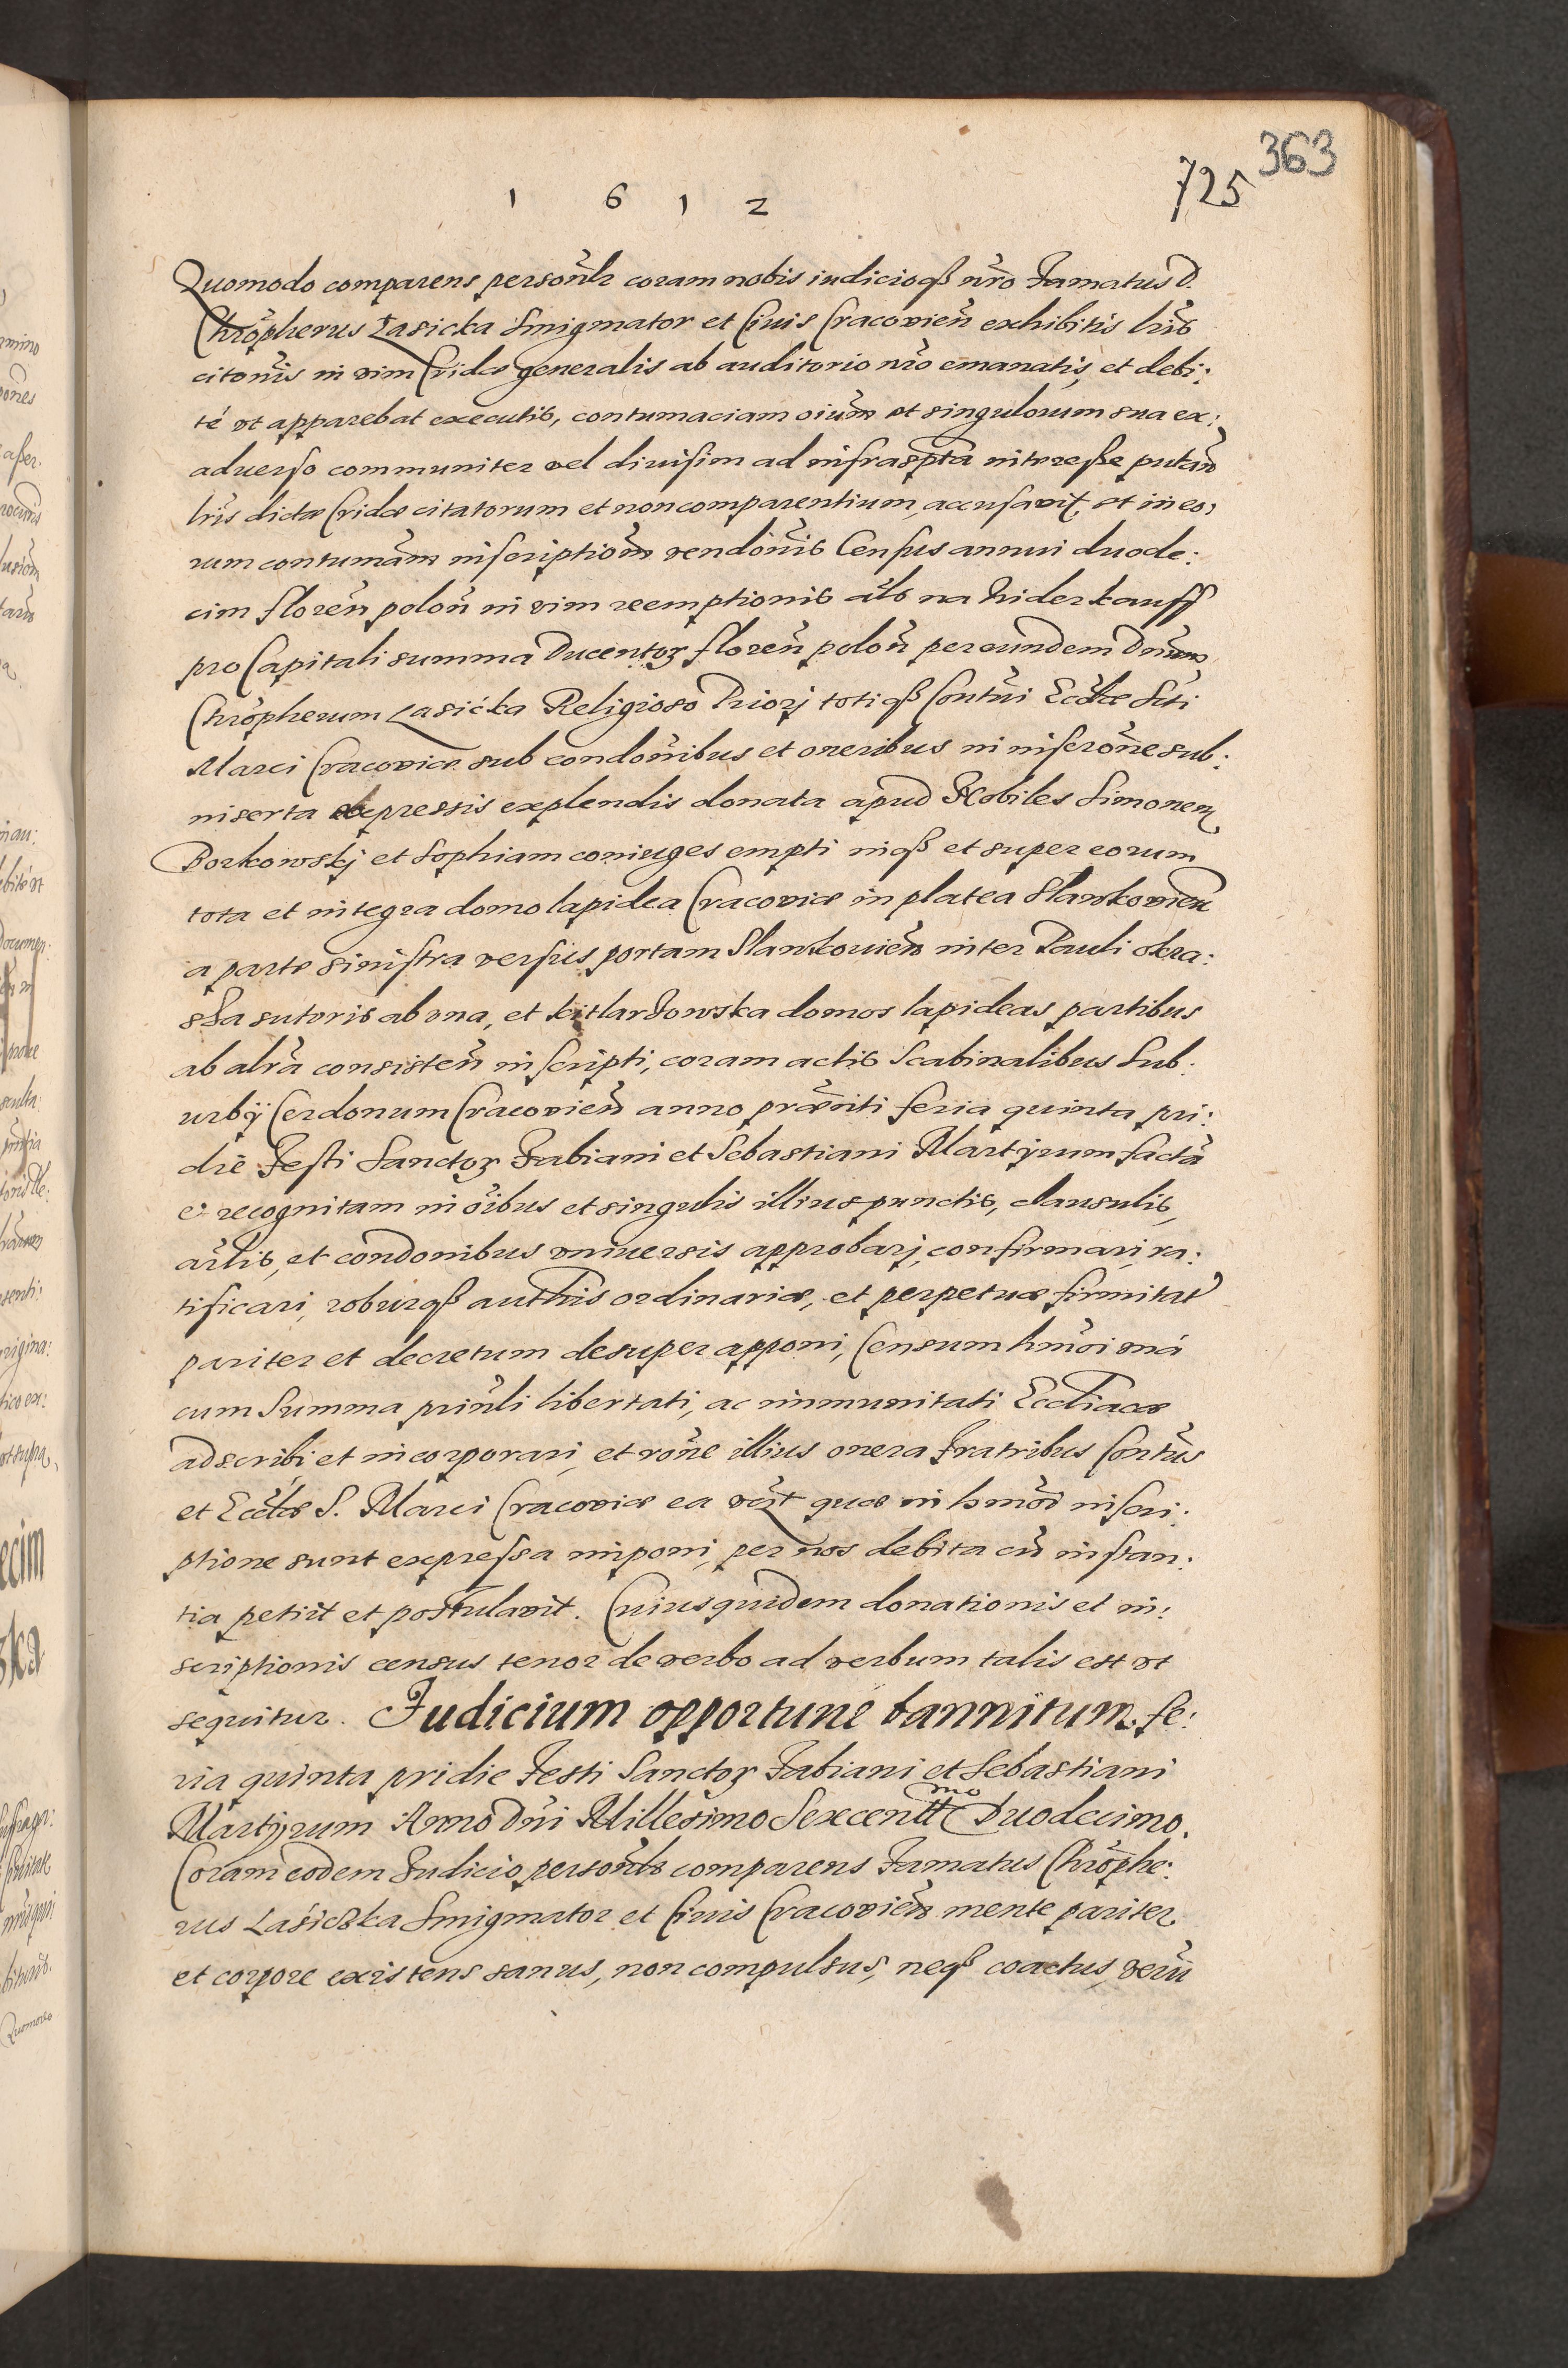 363
725
1 6 1 2
Quomodo comparens personlr coram nobis iudicioq̃ nro Famatus D.
Chropherus Łasicka Smigmator et Ciuis Cracovien exhibitis lris
citonis in vim Cridæ generalis ab auditorio nro emanatis, et debi:
té vt apparebat executis, contumaciam oium et singulorum sua ex:
aduerso communiter vel diuisim ad infraspta interesse putan
lris dictæ Cridæ citatorum et non comparentium, accusavit, et in eo,
rum contumam inscriptiom vendonis Census annui duode:
cim floren polon in vim reemptionis als na Widerkauff
pro Capitali summa Ducentoꝝ floren polon per eundem Dnum
Chropherum Łasicka Religioso Priorj totiq̃ Contui Ecclæ Sti
Marci Cracoviæ sub condonibus et oneribus in inscrone sub:
inserta expressis explendis donata apud Nobiles Simonem
Borkowskj et Sophiam coniuges empti inq̃ et super eorum
tota et integra domo lapidea Cracoviæ in platea Slawkovien
a parte sinistra versus portam Slawkouien inter Pauli okra:
sa sutoris ab vna, et kitlarzowska domos lapideas partibus
ab altra consisten inscripti, coram actis Scabinalibus Sub:
urbÿ Cerdonum Cracovien anno prænti feria quinta pri:
die Festi Sanctoꝝ Fabiani et Sebastiani Martyrum facta
et recognitam in oibus et singulis illius punctis, clausulis,
arlis, et condonibus vniversis approbarj, confirmari, ra:
tificari, roburq̃ authtis ordinariæ, et perpetuæ firmitat
pariter et decretum desuper apponi, Censum hmoi vná
cum Summa prinli libertati, ac immunitati Eccliacæ
adscribi et incorporari, et rone illius onera Fratribus Contus
et Ecclæ S. Marci Cracoviæ ea vt quæ in hmoi inscri:
ptione sunt expressa imponi, per nos debita cu instan:
tia petiit et postulavit. Cuiusquidem donationis et in:
scriptionis census tenor de verbo ad verbum talis est vt
sequitur. Judicium opportune bannitum. fe:
ria quinta pridie Festi Sanctoꝝ Fabiani et Sebastiani
Martyrum Anno Dni Millesimo Sexcentmo Duodecimo.
Coram eodem Iudicio personlr comparens Famatus Chrophe:
rus Łasiczka Smigmator et Ciuis Cracovien mente pariter
et corpore existens sanus, non compulsus, neq̃ coactus, veru